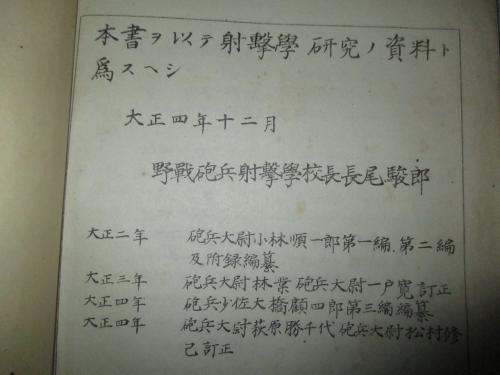 本書ヲ以テ射擊學研究ノ資料ト
爲スヘシ
大正四年十二月
野戰砲兵射擊學校長長尾駿郎
大正二年 砲兵大尉小林順一郎第一編、第二編
及附録編纂
大正三年 砲兵大尉林業砲兵大尉一戸寛訂正
大正四年 砲兵少佐大橋顧四郎第三編編纂
大正四年 砲兵大尉萩原勝千代砲兵大尉松村修
己訂正